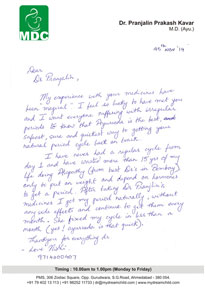 MDC
Dr. Pranjalin Prakash Kavar
M.D. (Ayu.)
19th Nov '14
Dear
Dr. Pranjalin,
My experience with your medicines have
been magical. I feel so lucky to have met you
and I want everyone suffering with irregular
periods to know that Ayurveda is the best, and
safest, sure and quickest way to getting your
natural period cycle back on track.
I have never had a regular cycle from
day 1 and have wasted more than 15 yrs of my
life doing Allopathy (from best Dr's in Bombay)
only to put on weight and depend on hormones
to get a period. After taking Dr Pranjalin's
medicines I get my period naturally, without
any side effects and continue to get them every
month. She fixed my cycle in less than a
month (yes! ayurveda is that quick).
Thankyou for everything dr.
Love
Timing : 10.00am to 1.00pm (Monday to Friday)